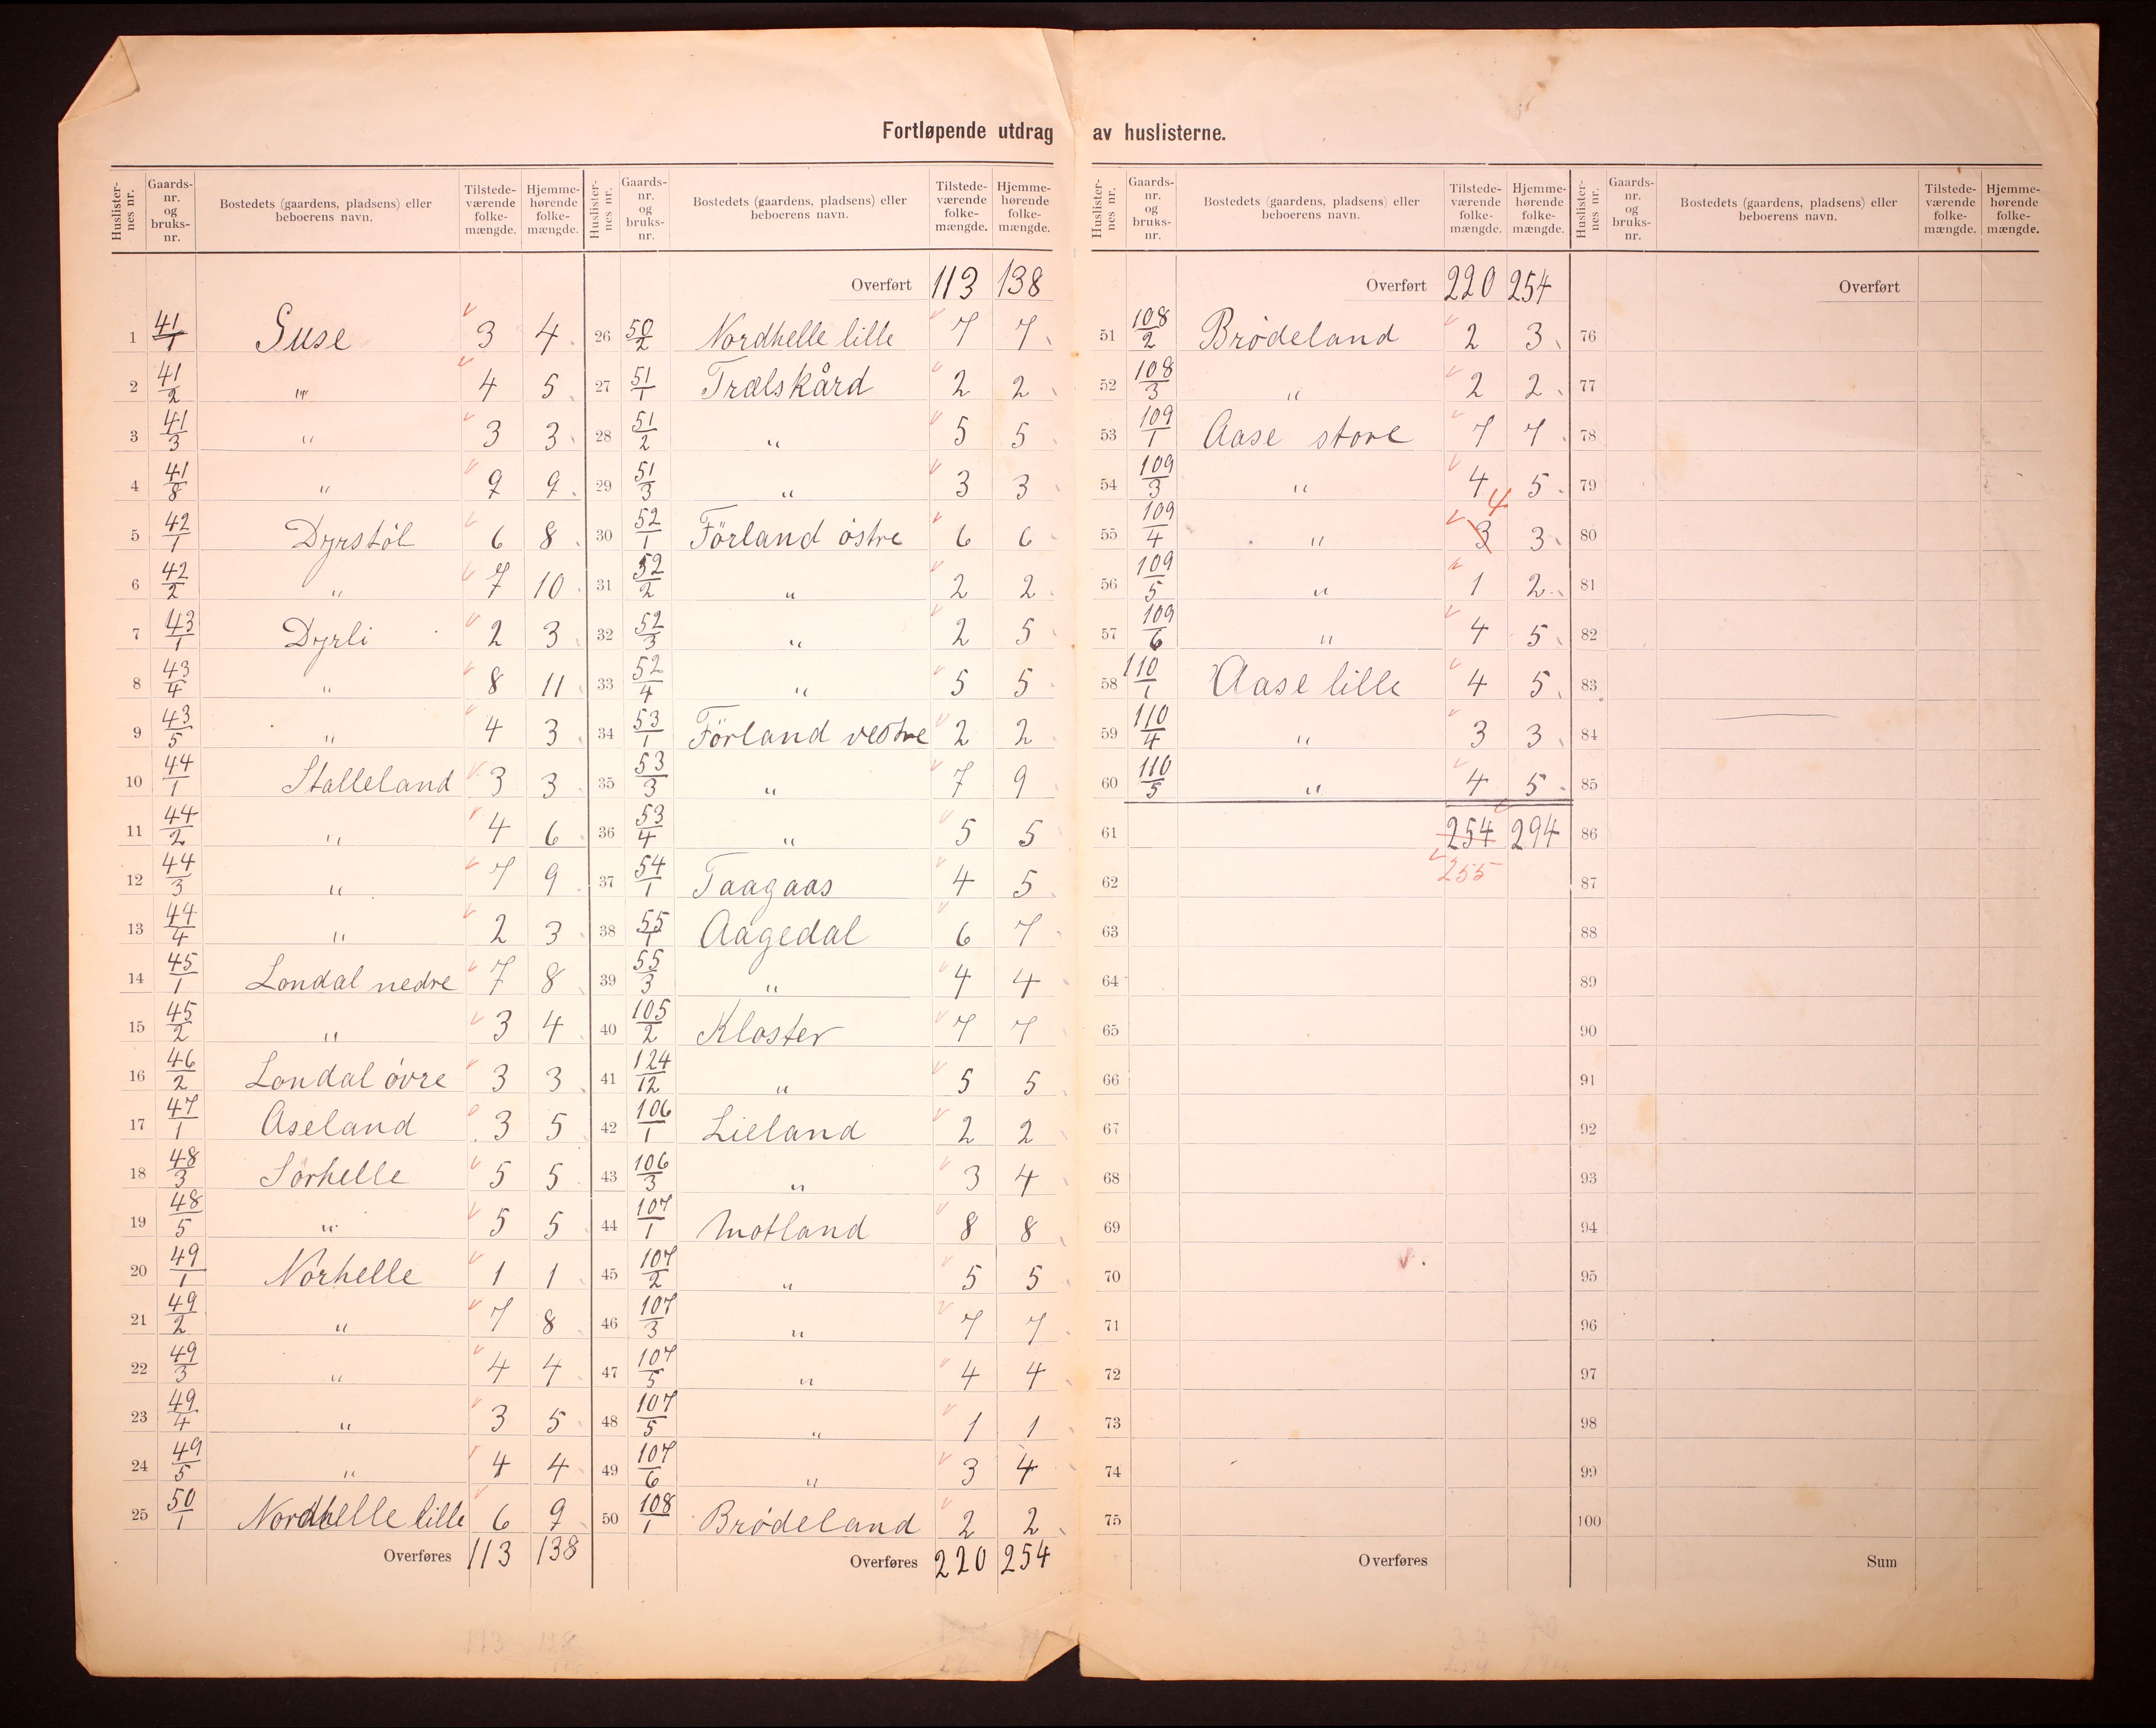 Fortløpende utdrag av huslisterne.
Huslister-nes nr. Gaards-nr. og bruks-nr. Bostedets (gaardens, pladsens) eller beboerens navn. Tilstede-værende folke-mængde. Hjemme-hørende folke-mængde.
1 41/1 Suse 3 4
2 41/2 " 4 5
3 41/3 " 3 3
4 41/8 " 9 9
5 42/1 Dyrstøl 6 8
6 42/2 " 7 10
7 43/1 Dyrli 2 3
8 43/4 " 8 11
9 43/5 " 4 3
10 44/1 Stalleland 3 3
11 44/2 " 4 6
12 44/3 " 7 9
13 44/4 " 2 3
14 45/1 Londal nedre 7 8
15 45/2 " 3 4
16 46/2 Londal övre 3 3
17 47/1 Aseland 3 5
18 48/3 Sørhelle 5 5
19 48/5 " 5 5
20 49/1 Norhelle 1 1
21 49/2 " 7 8
22 49/3 " 4 4
23 49/4 " 3 5
24 49/5 " 4 4
25 50/1 Nordhelle lille 6 9
Overføres 113 138
Huslister-nes nr. Gaards-nr. og bruks-nr. Bostedets (gaardens, pladsens) eller beboerens navn. Tilstede-værende folke-mængde. Hjemme-hørende folke-mængde.
Overført 113 138
26 50/2 Nordhelle lille 7 7
27 51/1 Trælskård 2 2
28 51/2 " 5 5
29 51/3 " 3 3
30 52/1 Förland östre 6 6
31 52/2 " 2 2
32 52/3 " 2 5
33 52/4 " 5 5
34 53/1 Förland vestre 2 2
35 53/3 " 7 9
36 53/4 " 5 5
37 54/1 Taagaas 4 5
38 55/1 Aagedal 6 7
39 55/3 " 4 4
40 105/2 Kloster 7 7
41 124/12 " 5 5
42 106/1 Lieland 2 2
43 106/3 " 3 4
44 107/1 Motland 8 8
45 107/2 " 5 5
46 107/3 " 7 7
47 107/5 " 4 4
48 107/5 " 1 1
49 107/6 " 3 4
50 108/1 Brödeland 2 2
Overføres 220 254
Huslister-nes nr. Gaards-nr. og bruks-nr. Bostedets (gaardens, pladsens) eller beboerens navn. Tilstede-værende folke-mængde. Hjemme-hørende folke-mængde.
Overført 220 254
51 108/2 Brödeland 2 3
52 108/3 " 2 2
53 109/1 Aase store 7 7
54 109/3 " 4 5
55 109/4 " 3 4 3
56 109/5 " 1 2
57 109/6 " 4 5
58 110/1 Aase lille 4 5
59 110/4 " 3 3
60 110/5 " 4 5
61 254 294
62 255
63
64
65
66
67
68
69
70
71
72
73
74
75
Overføres
Huslister-nes nr. Gaards-nr. og bruks-nr. Bostedets (gaardens, pladsens) eller beboerens navn. Tilstede-værende folke-mængde. Hjemme-hørende folke-mængde.
Overført
76
77
78
79
80
81
82
83
84
85
86
87
88
89
90
91
92
93
94
95
96
97
98
99
100
Sum
113 138